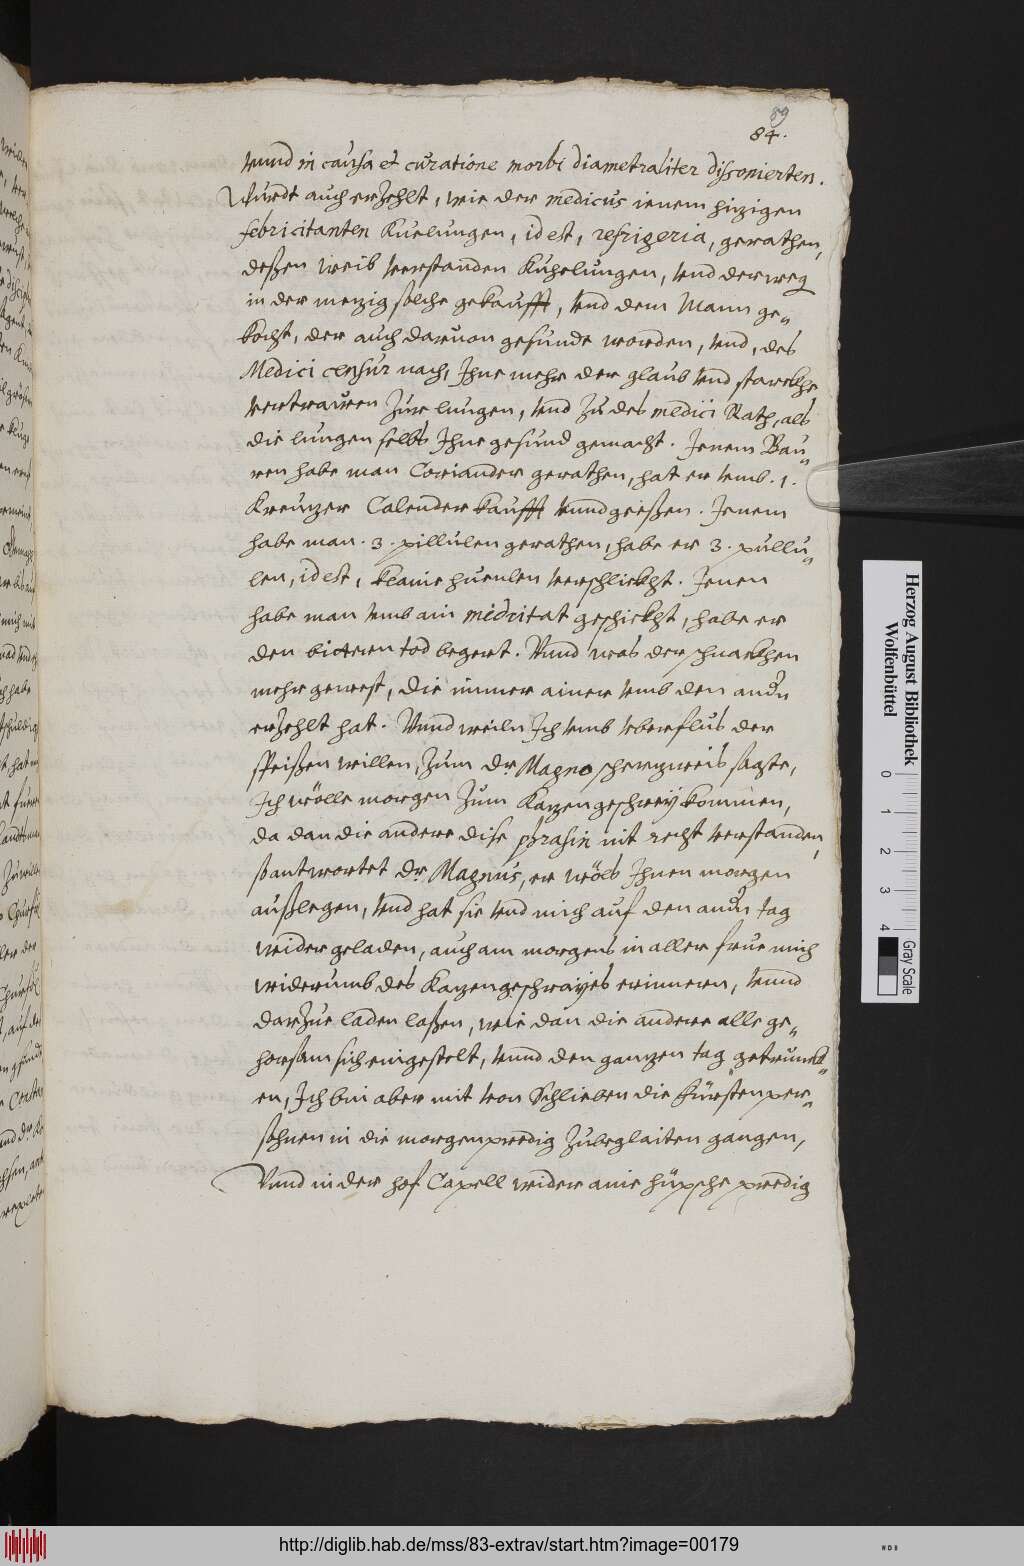 89
84.
vnnd in causa et curatione morbi diametraliter dissonierten.
Wurdt auch erzehlt, wie der medicus ienem hizigen
febricitanten Kuelungen, id est, refrigeria, gerathen,
deßen weib verstanden Kuhelungen, vnd derweg
in der mezig solche gekaufft, vnd dem Mann ge„
kocht, der auch daruon gesundt worden, vnd, des
Medici censur nach, Ihne mehr der glaub vnd starckhe
vertrawen zur lungen, vnd zu des medici Rath, als
die lungen selbs Ihne gesund gemacht. Jenem Bau„
ren habe man Coriander gerathen, hat er vmb .1.
Kreuzer Calender kaufft vnnd geeßen. Jenem
habe man .3. pillulen gerathen, habe er 3. pullu„
len, id est, klaine huenlen verschlickht. Jenen
habe man vmb ain medritat geschickht, habe er
den bittern tod begert. Vnnd was der schnackhen
mehr gewest, die immer ainer vmb den andn
erzehlt hat. Vnnd weiln Ich vmb vberflus der
speißen willen, zum Dr. Magno scherzweis sagte,
Ich wölle morgen zum Kazengeschrey kommen,
da dan die andere dise phrasin nit recht verstanden,
antwortet Dr. Magnus, er wöls Ihnen morgen
außlegen, vnd hat sie vnd mich auf den andn tag
wider geladen, auch am morgens in aller frue mich
widerumb des Kazengeschrayes erinnern, vnnd
darzue laden laßen, wie dan die andere alle ge„
horsam sich eingestelt, vnnd den ganzen tag getrunckh„
en, Ich bin aber mit von Schlieben die Fürstenper„
sohnen in die morgenpredig zubeglaiten gangen,
Vnnd in der hof Capell wider aine hüpsche predig
Herzog August Bibliothek
Wolfenbüttel
0 1 2 3 4
Gray Scale
http://diglib.hab.de/mss/83-extrav/start.htm?image=00179